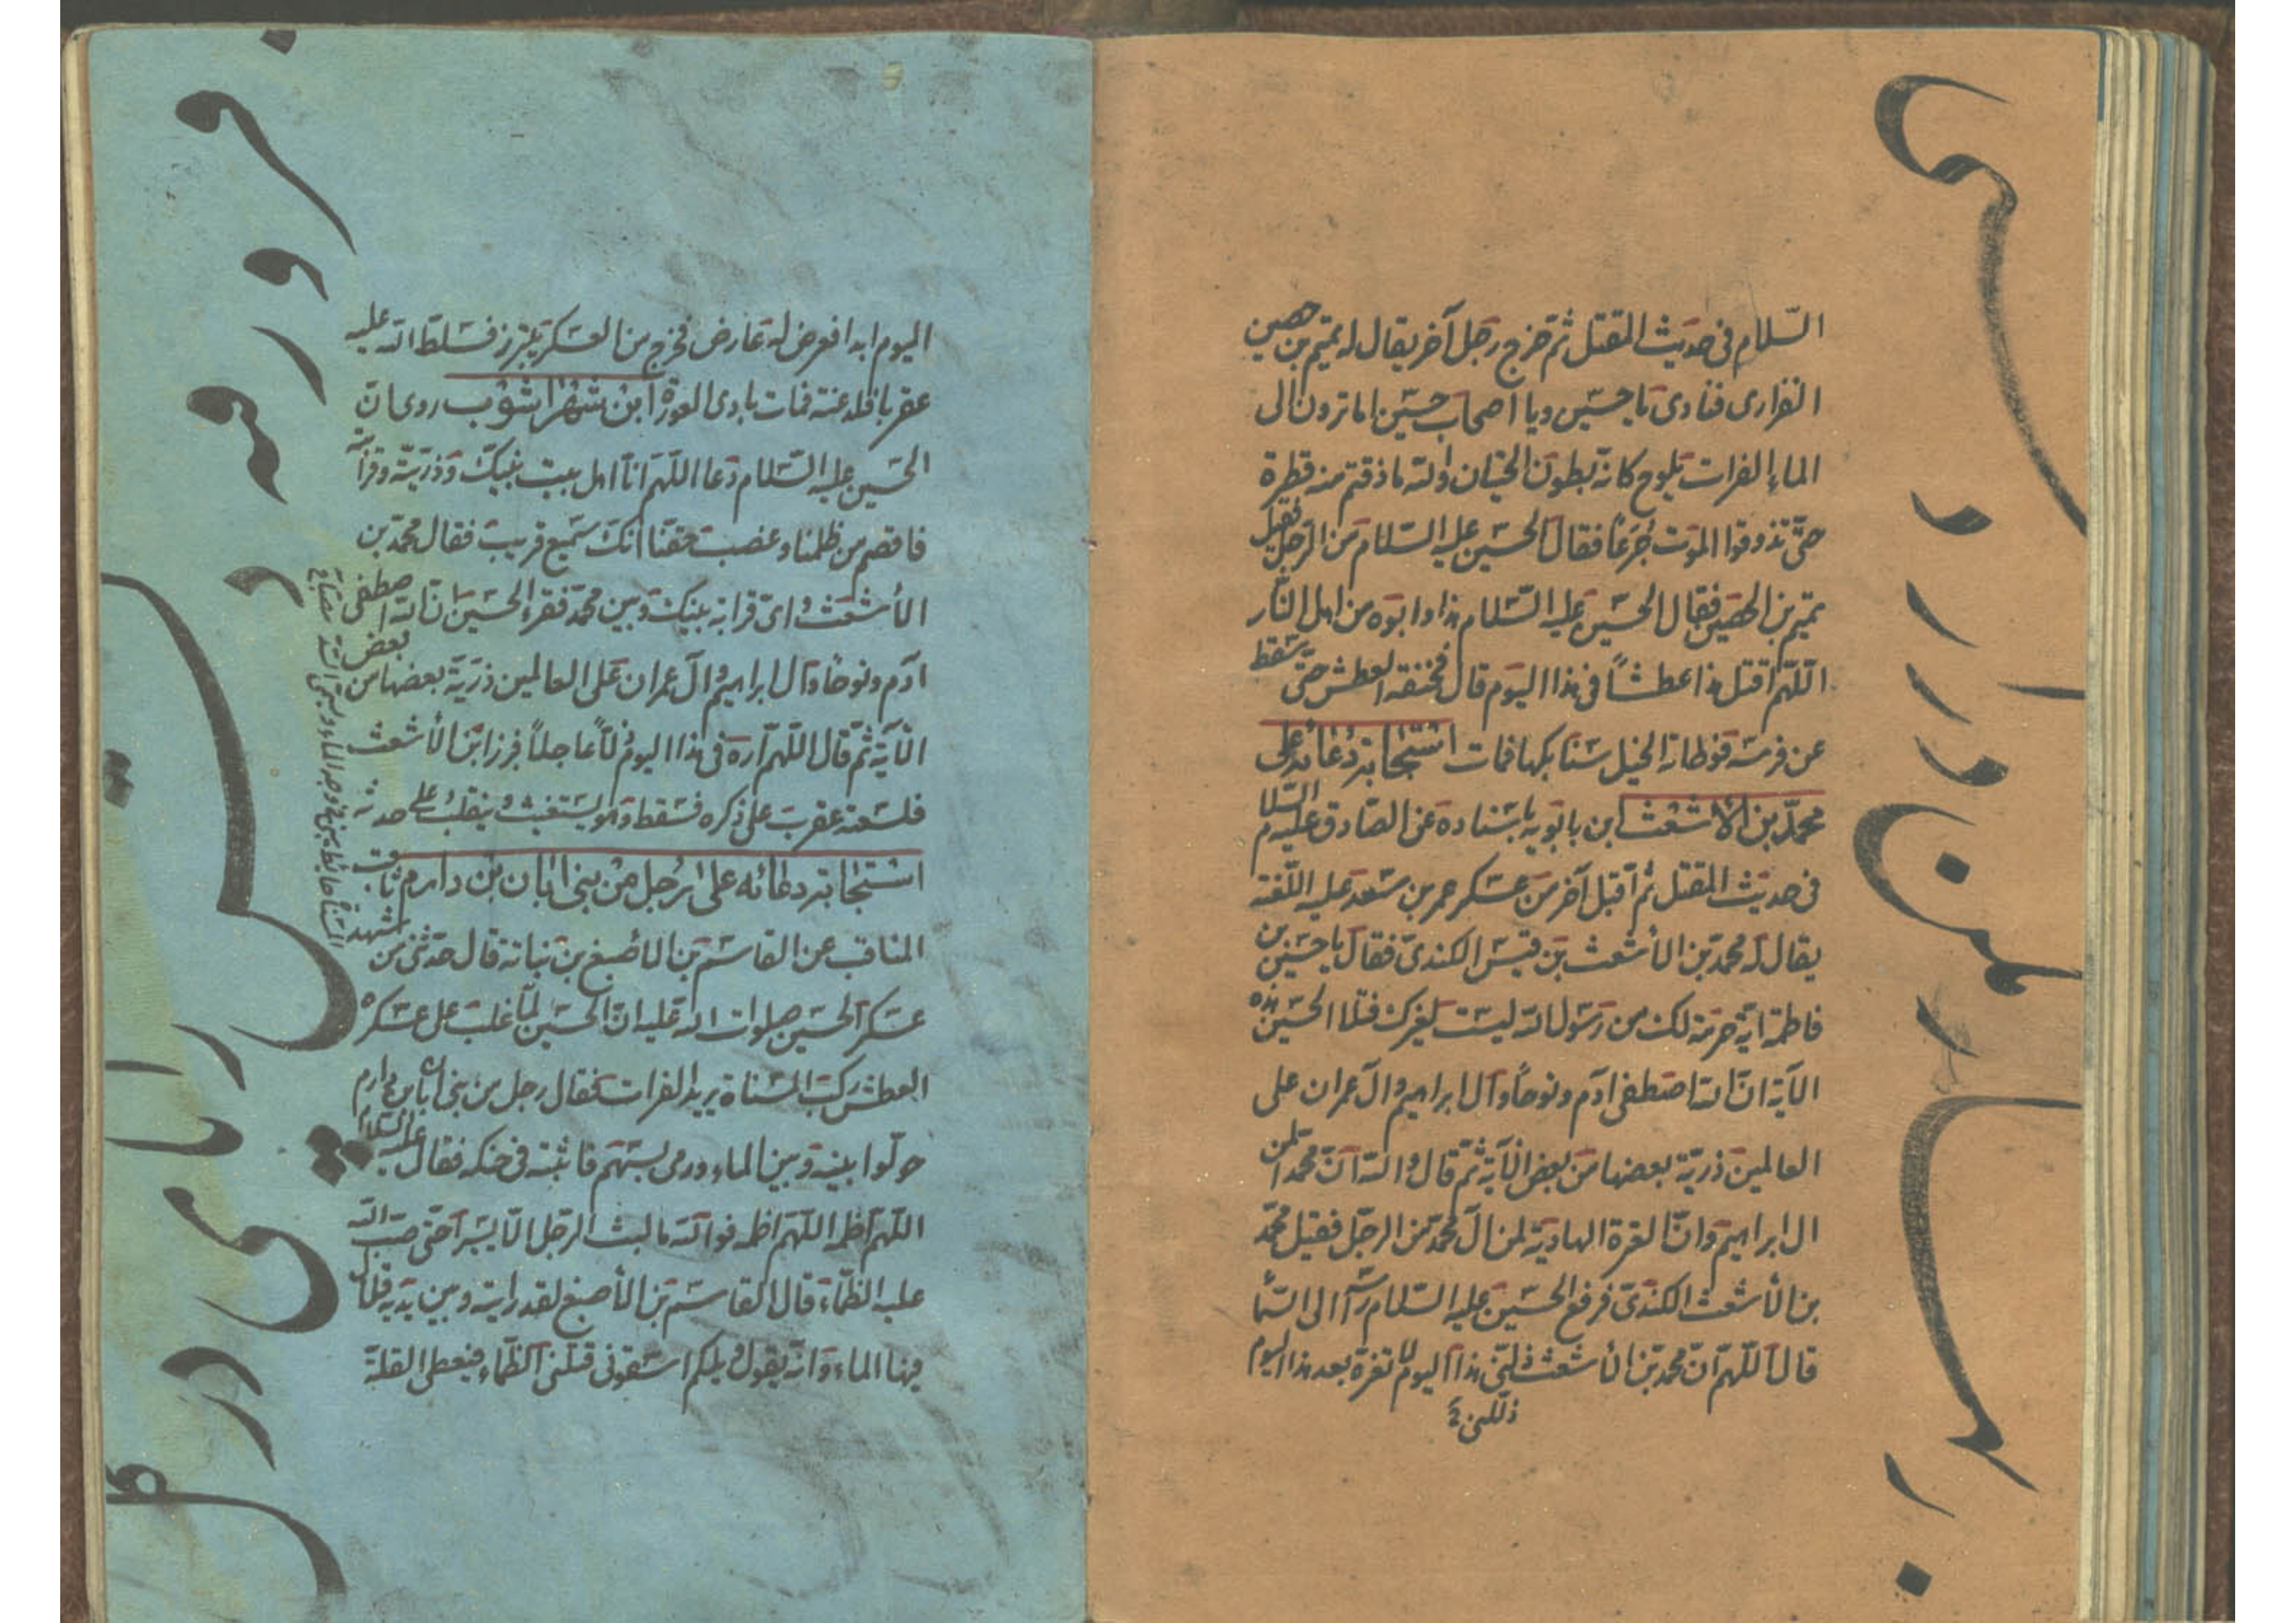 السّلام فى حديث المقتل ثمّ خرج رجل آخر يقال له تميم بن حصين
الفزارى فنادى يا حسين ويا اصحاب حسين اما ترون الى
الماء الفرات يلوح كانّه بطون الحيتان والله ما ذقتم منه قطرة
حتّى تذوقوا الموت جرعاً فقال الحسين عليه السّلام من الرّجل فقيل
تميم بن الحصين فقال الحسين عليه السّلام هذا وابوه من اهل النّار
اللّهمّ اقتل هذا عطشاً فى هذا اليوم قال فخنقه العطش حتّى سقط
عن فرسه فوطاته الخيل سنابكها فمات استجابة دعائه على
محمّد بن الاشعث ابن بابويه باسناده عن الصّادق عليه السّلام
فى حديث المقتل ثم اقبل آخر من عسكر عمر بن سعد عليه اللّعنة
يقال له محمد بن الأشعث بن قيس الكندىّ فقال يا حسين بن
فاطمة ايّة حرمة لك من رسول الله ليست لغيرك فتلا الحسين هذه
الآية انّ الله اصطفى ادم ونوحاً وآل ابراهيم وآل عمران على
العالمين ذريّة بعضها من بعض الآية ثمّ قال والله انّ محمّدا لمن
ال ابراهيم وانّ العترة الهادية لمن آل محمّد من الرجل فقيل محمّد
بن الأشعث الكندىّ فرفع الحسين عليه السّلام راسه الى السّما
قال اللّهمّ انّ محمد بن الأشعث ذلّنى هذا اليوم لا تعزّه بعد هذا اليوم
اليوم ابدا فعرض له عارض فخرج من العسكر يتبرّز فسلّط الله عليه
عقربا فلدغته فمات بادى العورة ابن شهراشوب روى انّ
الحسين عليه السّلام دعا اللّهمّ انّا اهل بيت نبيك وذرّيّته وقرابته
فاقصم من ظلمنا وغصب حقّنا انّك سميع قريب فقال محمّد بن
الأشعث واىّ قرابة بينك وبين محمّد فقرء الحسين انّ الله اصطفى
ادم ونوحا وآل ابراهيم وآل عمران على العالمين ذرّيّة بعضها من بعض
الآية ثمّ قال اللّهمّ اره فى هذا اليوم ذلّاً عاجلاً فبرز ابن الأشعث
فلسعته عقرب على ذكره فسقط وهو يستغيث ويتقلّب على حدثه
استجابة دعائه على رجل من بنى ابان بن دارم ثاقب
المناقب عن القاسم بن الأصبغ بن نباتة قال حدّثنى من شهد
عسكر الحسين صلوات الله عليه انّ الحسين لمّا غلب على عسكره
العطش ركب المسناة يريد الفرات فقال رجل من بنى ابان بن دارم
حولوا بينه وبين الماء ورمى بسهم فاثبته فى حنكه فقال عليه السّلام
اللّهمّ اظمه اللّهمّ اظمه فوالله ما لبث الرّجل الّا يسيرا حتّى صبّ الله
عليه الظّماء قال القاسم بن الأصبغ لقد رايته وبين يديه قلال
فيها الماء وانّه يقول ويلكم اسقونى قتلنى الظّماء فيعطى القلّة